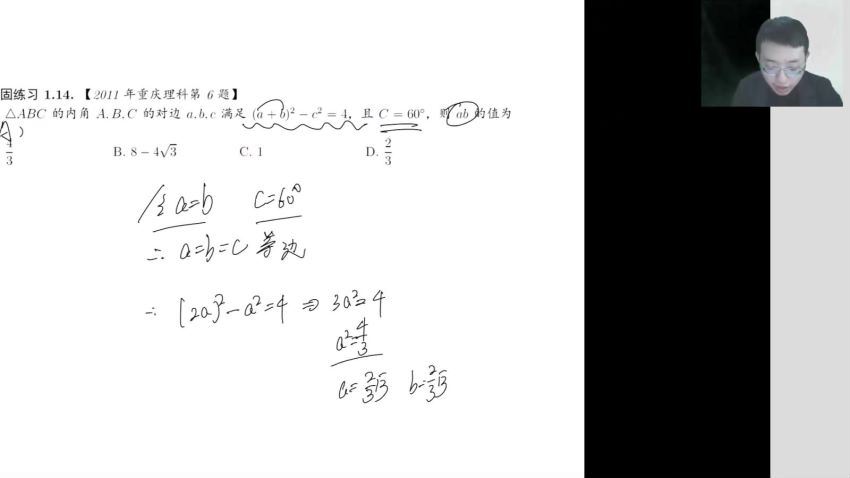 固练习 1.14.【2011 年重庆理科第 6 题】
△ABC 的内角 A.B.C 的对边 a.b.c 满足 (a + b)² − c² = 4, 且 C = 60°, 则 ab 的值为
A )
4/3 B. 8 − 4√3 C. 1 D. 2/3
令 a=b C=60°
∴ a=b=c 等边
∴ (2a)²−a²=4 ⇒ 3a²=4
a²=4/3
a=2/3√3 b=2/3√3